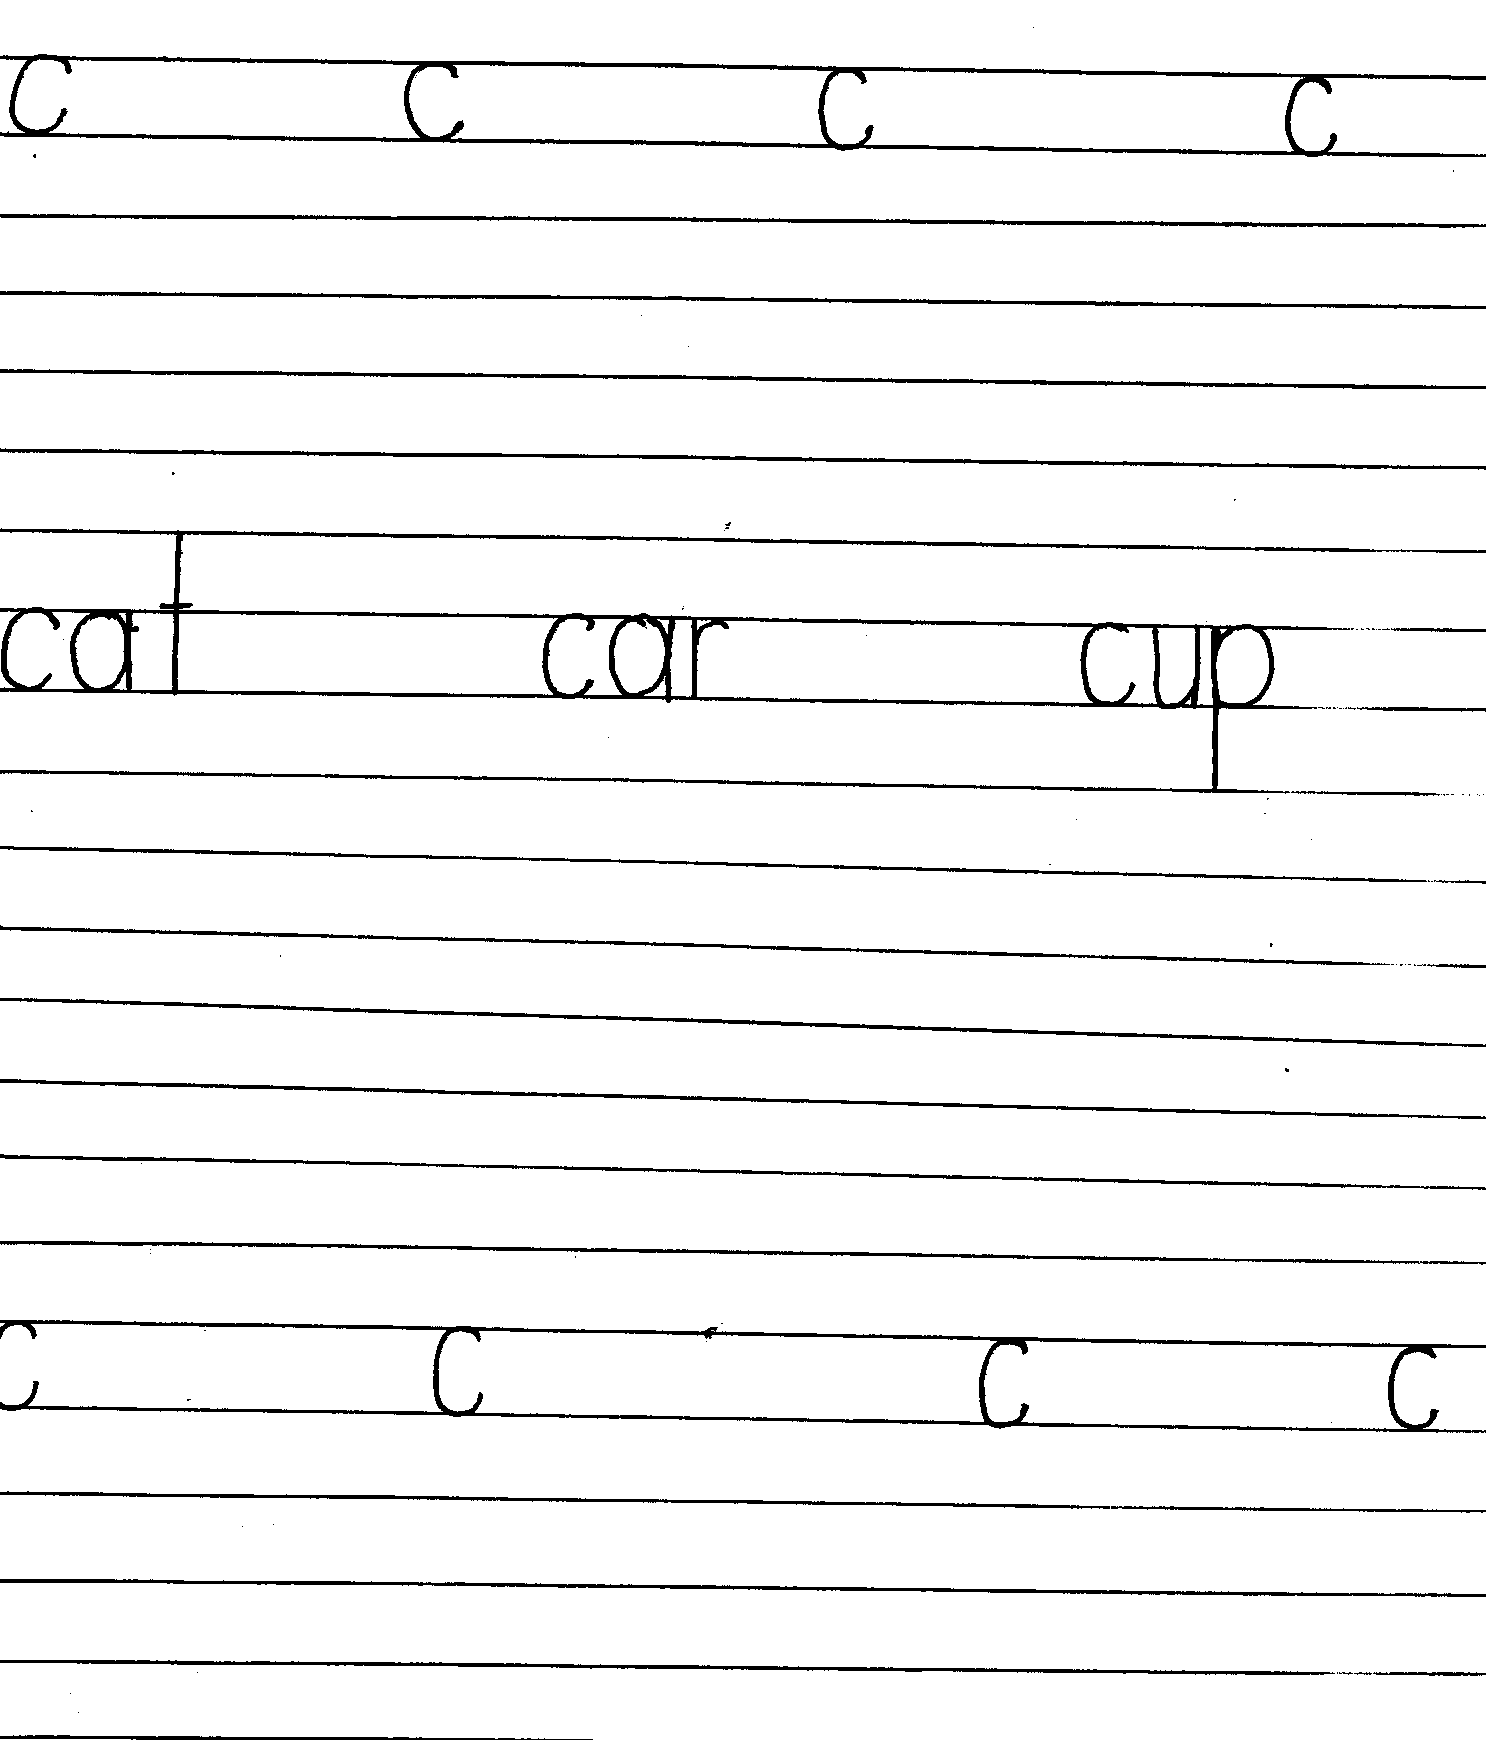 c c c c
cat car cup
c c c c